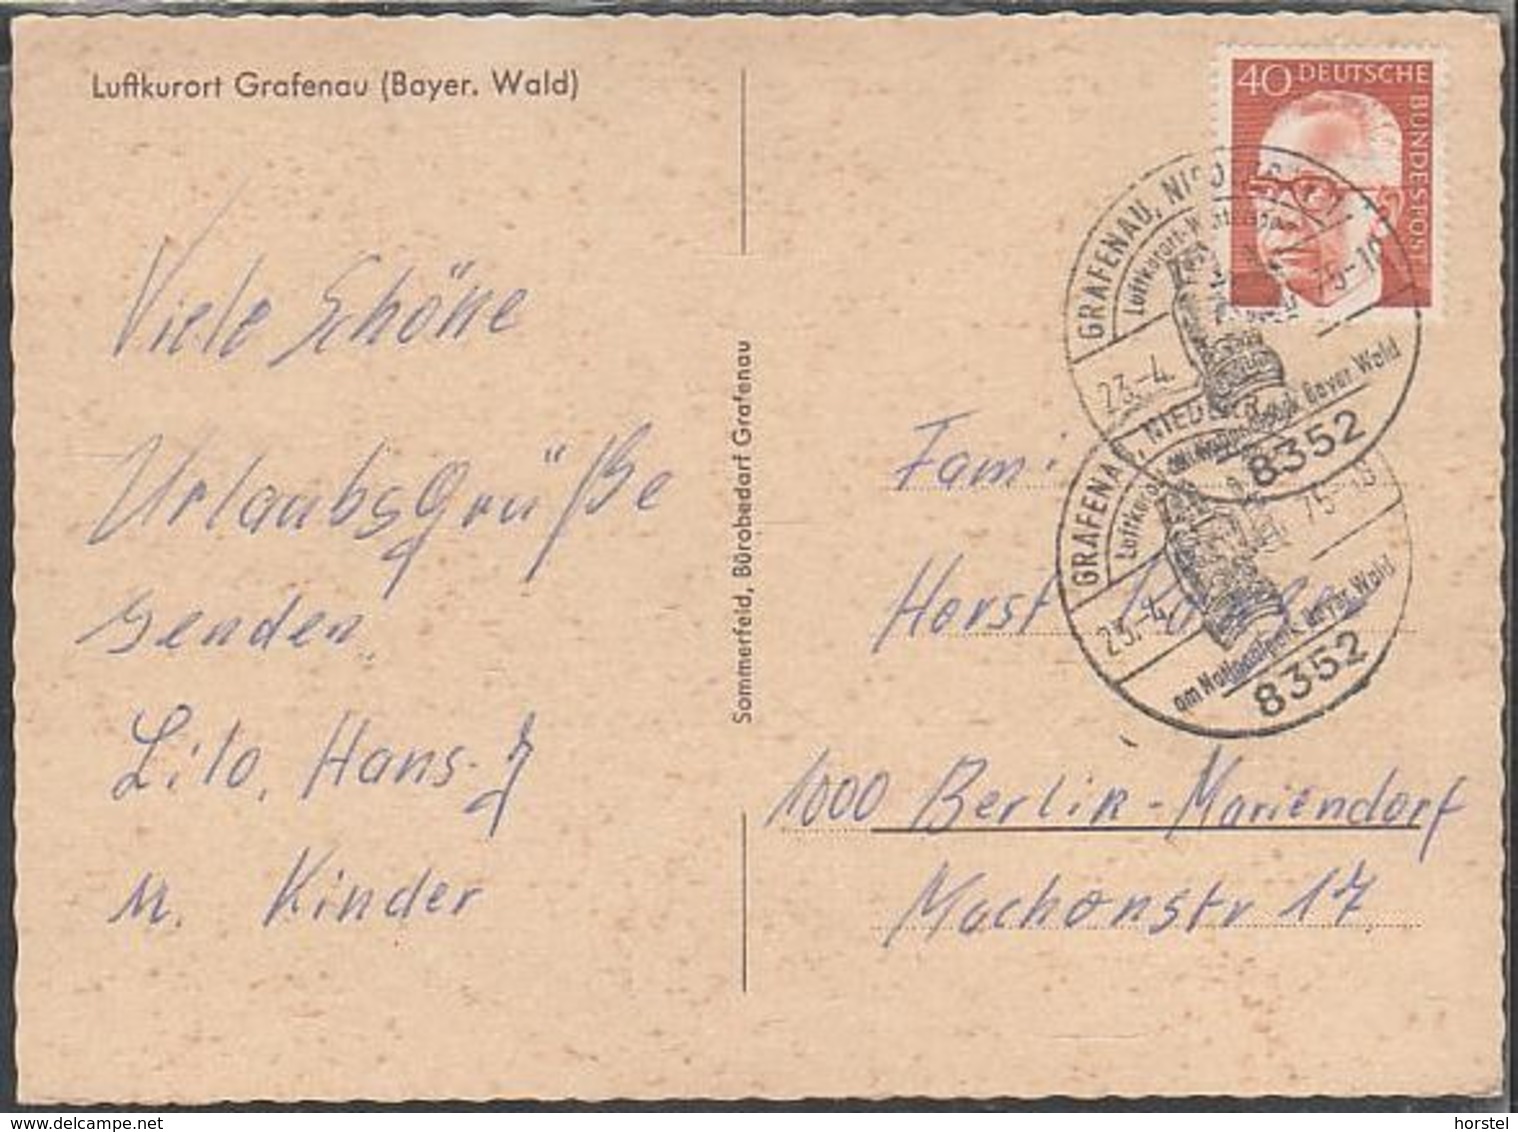 Luftkurort Grafenau (Bayer. Wald)
Viele Schöne
Urlaubsgrüße
senden
Lilo, Hans-J
u. Kinder
Sommerfeld, Bürobedarf Grafenau
40 DEUTSCHE BUNDESPOST
GRAFENAU, NIEDERBAY
Luftkurort
23.-4. 75-10
am Nationalpark Bayer Wald
8352
GRAFENAU, NIEDERBAY
Luftkurort
23.-4. 75-18
am Nationalpark Bayer Wald
8352
Fam.
Horst
1000 Berlin-Mariendorf
Machonstr 17
horstel @ delcampe.net